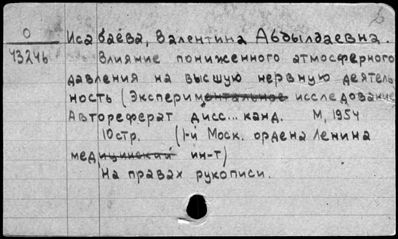 О
43246
Исабаева, Валентина Абдылдаевна.
Влияние пониженного атмосферного
давления на высшую нервную деятель-
ность (Экспериментальное исследование
Автореферат дисс... канд. М, 1954
10стр. (1-й Моск. ордена Ленина
медицинский ин-т)
На правах рукописи.